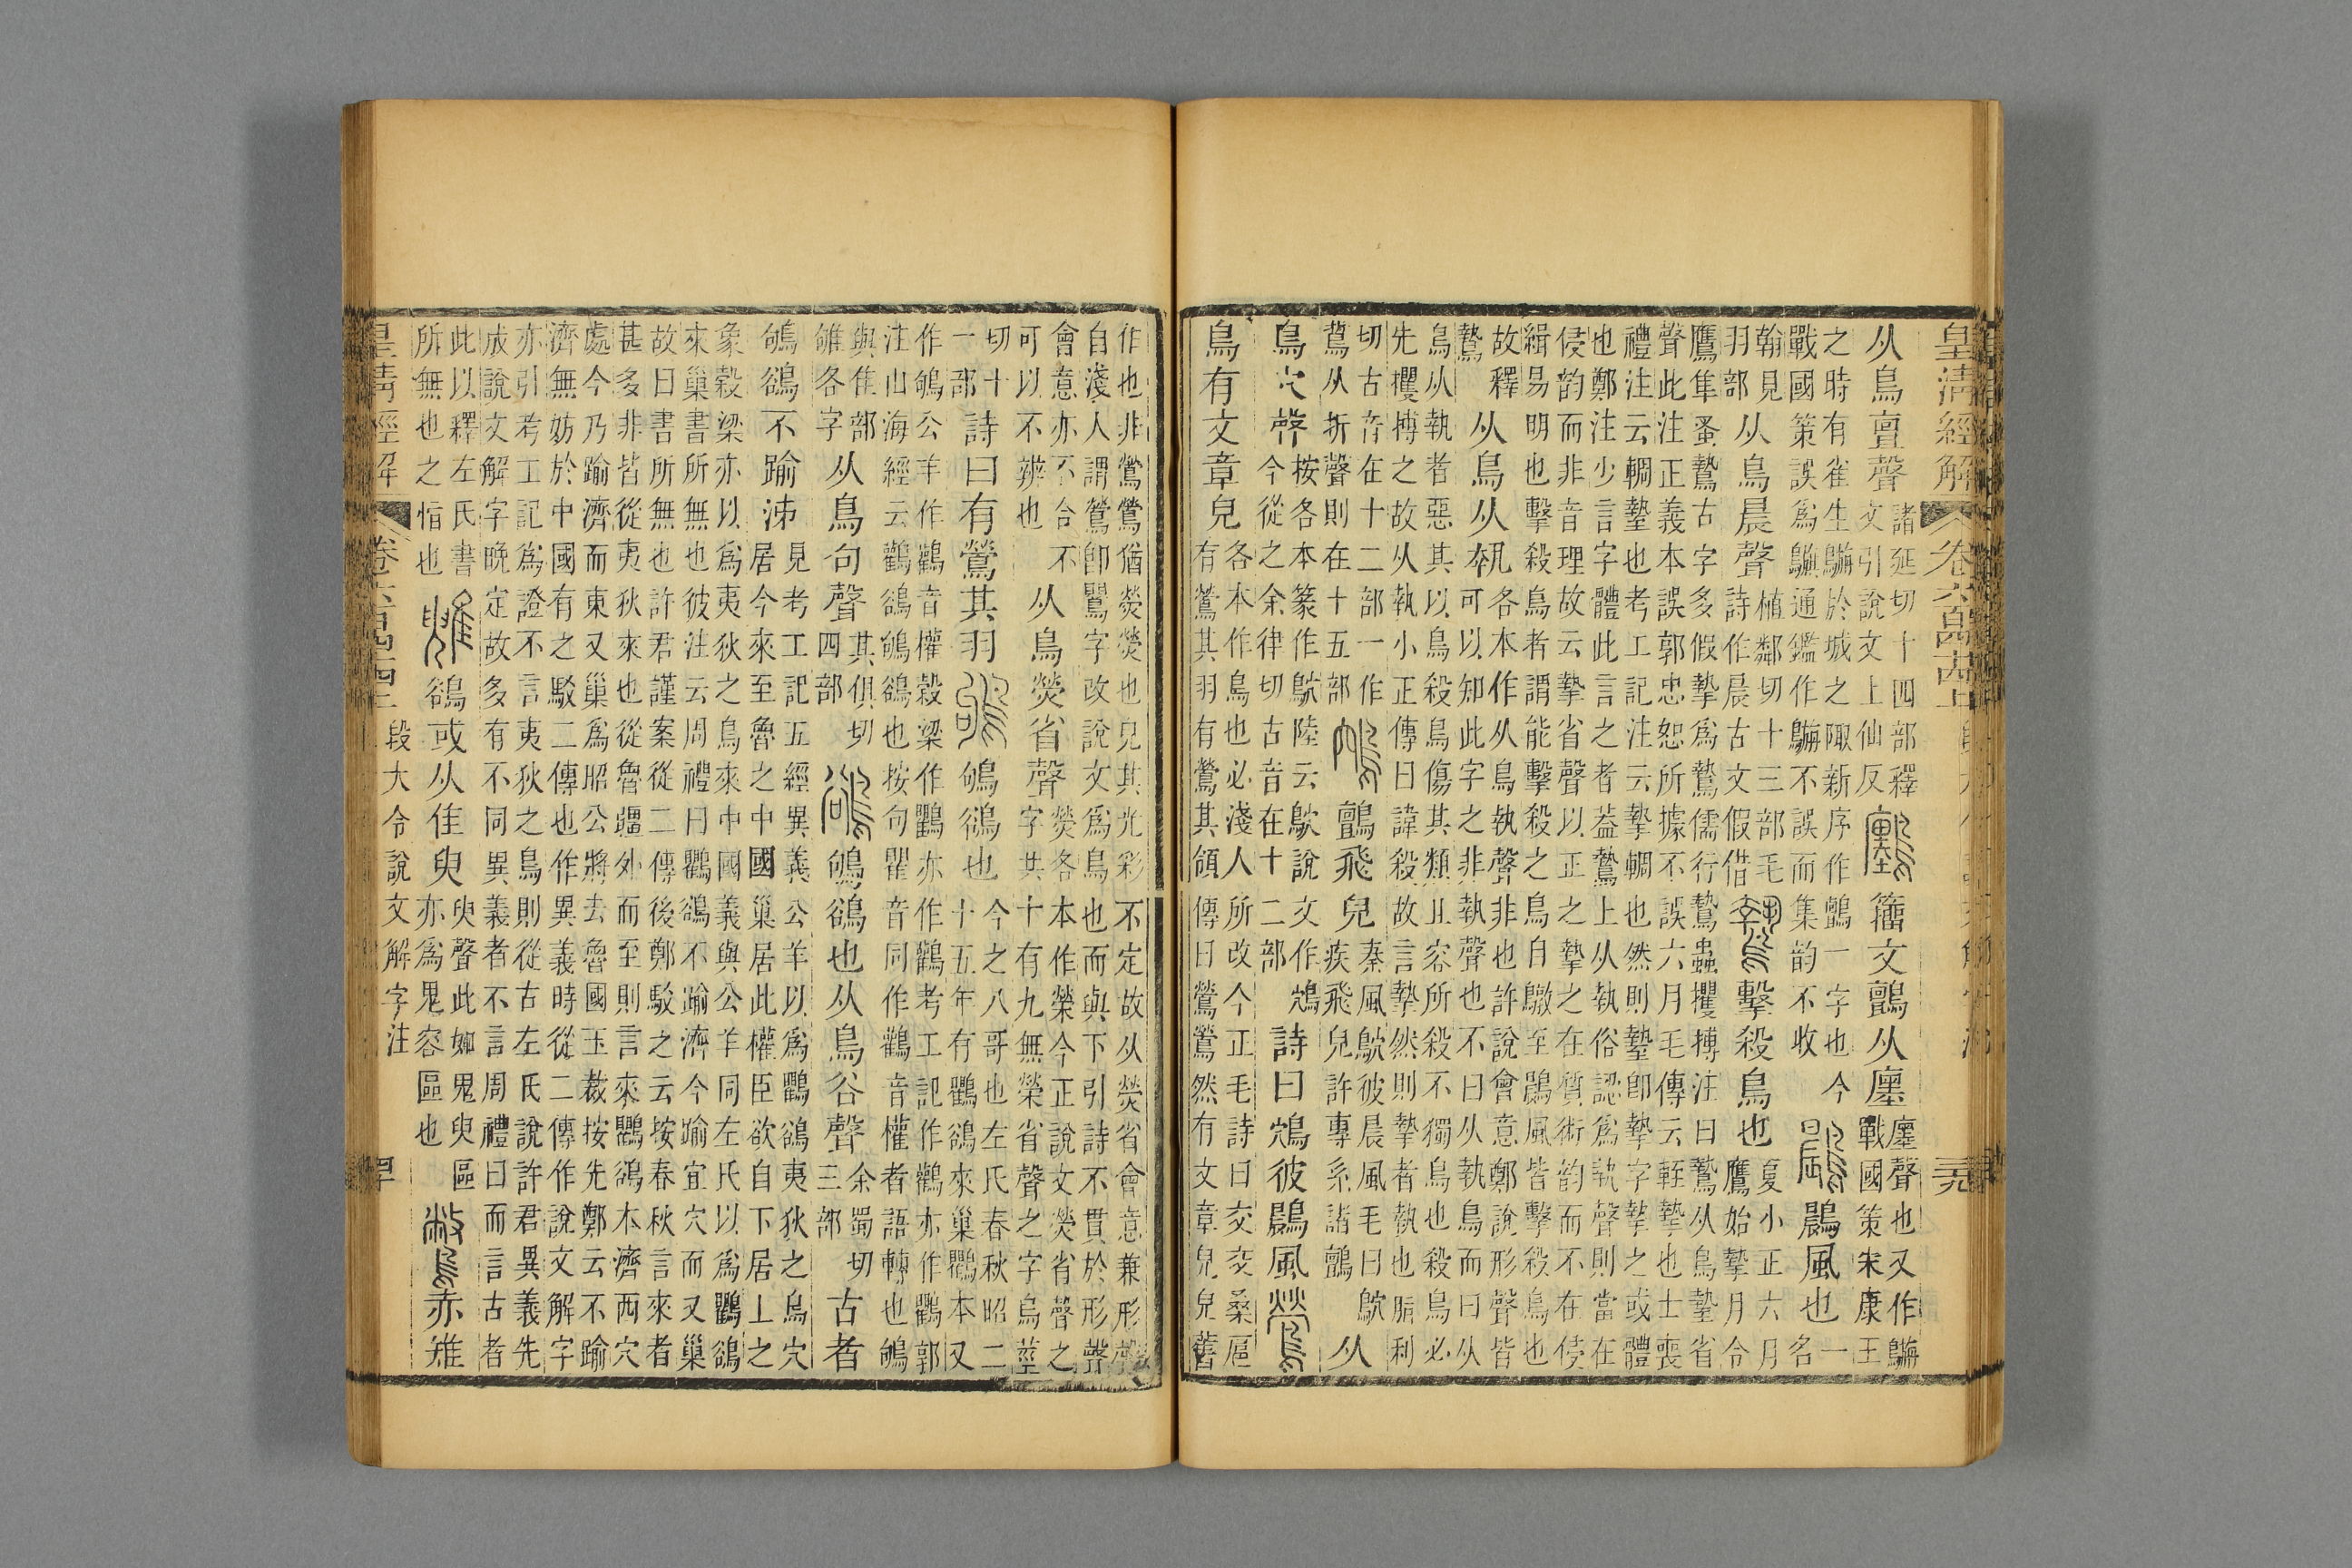 皇清經解 卷六百四十四上
从鳥亶聲諸延切十四部釋
文引說文上仙反籒文鸇从廛廛聲也又作
戰國策宋康王
之時有雀生 於城之陬新序作鸇一字也今
戰國策誤爲 通鑑作 不誤而集韵不收鷐風也一
名
翰見
羽部从鳥晨聲植鄰切十三部毛
詩作晨古文假借擊殺鳥也夏小正六月
鷹始摯月令
鷹隼蚤鷙古字多假摯爲鷙儒行鷙蟲攫搏注曰鷙从鳥摯省
聲此注正義本誤郭忠恕所據不誤六月毛傳云輊摯也士喪
禮注云輖墊也考工記注云摯輖也然則墊卽摯字摯之或體
也鄭注少言字體此言之者葢鷙上从執俗認爲執聲則當在
侵韵而非音理故云摯省聲以正之摯之在質術韵而不在侵
緝易明也擊殺鳥者謂能擊殺之鳥自鷻至鷐風皆擊殺鳥也
故釋
鷙从鳥从執各本作从鳥執聲非也許說會意鄭說形聲皆
可以知此字之非執聲也不曰从執鳥而曰从
鳥从執者惡其以鳥殺鳥傷其類且容所殺不獨鳥也殺鳥必
先攫搏之故从執小正傳曰諱殺故言摯然則摯者執也脂利
切古音在十二部一作
鷙从折聲則在十五部鸇飛皃秦風鴥彼晨風毛曰鴥
疾飛皃許專系諸鸇从
鳥穴聲按各本篆作鴥陸云鴥說文作鴪
今從之余律切古音在十二部詩曰鴥彼鷐風
鳥有文章皃各本作鳥也必淺人所改今正毛詩曰交交桑扈
有鶯其羽有鶯其領傳曰鶯鶯然有文章皃皃舊
作也非鶯鶯猶熒熒也皃其光彩不定故从熒省會意兼形聲
自淺人謂鶯卽鸎字改說文爲鳥也而與下引詩不貫於形聲
會意亦不合不
可以不辨也从鳥熒省聲熒各本作榮今正說文熒省聲之
字共十有九無榮省聲之字烏莖
切十
一部詩曰有鶯其羽鴝鵒也今之八哥也左氏春秋昭二
十五年有鸜鵒來巢鸜本又
作鴝公羊作鸛音權榖梁作鸜亦作鸛考工記作鸛亦作鸜郭
注山海經云鸛鵒鴝鵒也按句瞿音同作鸛音權者語轉也鴝
與隹部
雊各字从鳥句聲其俱切
四部鴝鵒也从鳥谷聲余蜀切
三部古者
鴝鵒不踰泲見考工記五經異義公羊以爲鸜鵒夷狄之鳥穴
居今來至魯之中國巢居此權臣欲自下居上之
象榖梁亦以爲夷狄之鳥來中國義與公羊同左氏以爲鸜鵒
來巢書所無也彼注云周禮曰鸜鵒不踰濟今踰宜穴而又巢
故曰書所無也許君謹案從二傳後鄭駁之云按春秋言來者
甚多非皆從夷狄來也從魯疆外而至則言來鸜鵒本濟西穴
處今乃踰濟而東又巢爲昭公將去魯國玉裁按先鄭云不踰
濟無妨於中國有之駁二傳也作異義時從二傳作說文解字
亦引考工記爲證不言夷狄之鳥則從古左氏說許君異義先
成說文解字晚定故多有不同異義者不言周禮曰而言古者
此以釋左氏書
所無也之恉也鵒或从隹臾臾聲此如鬼臾區
亦爲鬼容區也赤雉
皇清經解 卷六百四十四上 段大令說文解字注